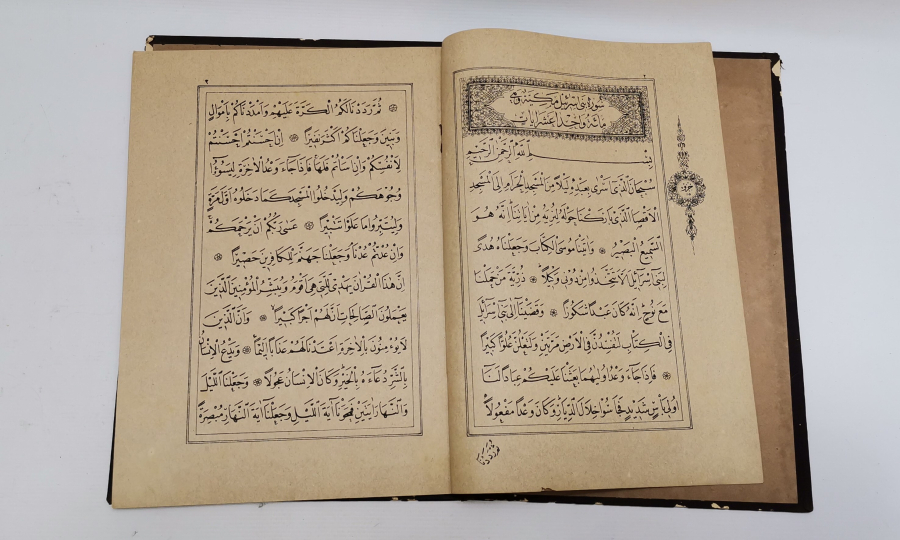 ٢
سورة بنى اسرئيل مكية وهى
مائة واحدا عشر ايات
بِسْمِ اللَّهِ الرَّحْمٰنِ الرَّحِيمِ
سُبْحَانَ الَّذِى أَسْرَى بِعَبْدِهِ لَيْلًا مِنَ الْمَسْجِدِ الْحَرَامِ اِلَى الْمَسْجِدِ
الْاَقْصَا الَّذِى بَارَكْنَا حَوْلَهُ لِنُرِيَهُ مِنْ اٰيَاتِنَا اِنَّهُ هُوَ
السَّمِيعُ الْبَصِيرُ ۞ وَاٰتَيْنَا مُوسَى الْكِتَابَ وَجَعَلْنَاهُ هُدًى
لِبَنِى اِسْرَائِلَ اَلَّا تَتَّخِذُوا مِنْ دُونِى وَكِيلًا ۞ ذُرِّيَّةَ مَنْ حَمَلْنَا
مَعَ نُوحٍ اِنَّهُ كَانَ عَبْدًا شَكُورًا ۞ وَقَضَيْنَا اِلَى بَنِى اِسْرَائِلَ
فِى الْكِتَابِ لَتُفْسِدُنَّ فِى الْاَرْضِ مَرَّتَيْنِ وَلَتَعْلُنَّ عُلُوًّا كَبِيرًا
۞ فَاِذَا جَاءَ وَعْدُ اُولٰيهُمَا بَعَثْنَا عَلَيْكُمْ عِبَادًا لَنَا
اُولِى بَأْسٍ شَدِيدٍ فَجَاسُوا خِلَالَ الدِّيَارِ وَكَانَ وَعْدًا مَفْعُولًا
ثم رددنا
٢
ثُمَّ رَدَدْنَا لَكُمُ الْكَرَّةَ عَلَيْهِمْ وَاَمْدَدْنَاكُمْ بِاَمْوَالٍ
وَبَنِينَ وَجَعَلْنَاكُمْ اَكْثَرَ نَفِيرًا ۞ اِنْ اَحْسَنْتُمْ اَحْسَنْتُمْ
لِاَنْفُسِكُمْ وَاِنْ اَسَأْتُمْ فَلَهَا فَاِذَا جَاءَ وَعْدُ الْاٰخِرَةِ لِيَسُوؤُا
وُجُوهَكُمْ وَلِيَدْخُلُوا الْمَسْجِدَ كَمَا دَخَلُوهُ اَوَّلَ مَرَّةٍ
وَلِيُتَبِّرُوا مَا عَلَوْا تَتْبِيرًا ۞ عَسٰى رَبُّكُمْ اَنْ يَرْحَمَكُمْ
وَاِنْ عُدْتُمْ عُدْنَا وَجَعَلْنَا جَهَنَّمَ لِلْكَافِرِينَ حَصِيرًا ۞
اِنَّ هٰذَا الْقُرْاٰنَ يَهْدِى لِلَّتِى هِىَ اَقْوَمُ وَيُبَشِّرُ الْمُؤْمِنِينَ الَّذِينَ
يَعْمَلُونَ الصَّالِحَاتِ اَنَّ لَهُمْ اَجْرًا كَبِيرًا ۞ وَاَنَّ الَّذِينَ
لَا يُؤْمِنُونَ بِالْاٰخِرَةِ اَعْتَدْنَا لَهُمْ عَذَابًا اَلِيمًا ۞ وَيَدْعُ الْاِنْسَانُ
بِالشَّرِّ دُعَاءَهُ بِالْخَيْرِ وَكَانَ الْاِنْسَانُ عَجُولًا ۞ وَجَعَلْنَا اللَّيْلَ
وَالنَّهَارَ اٰيَتَيْنِ فَمَحَوْنَا اٰيَةَ اللَّيْلِ وَجَعَلْنَا اٰيَةَ النَّهَارِ مُبْصِرَةً